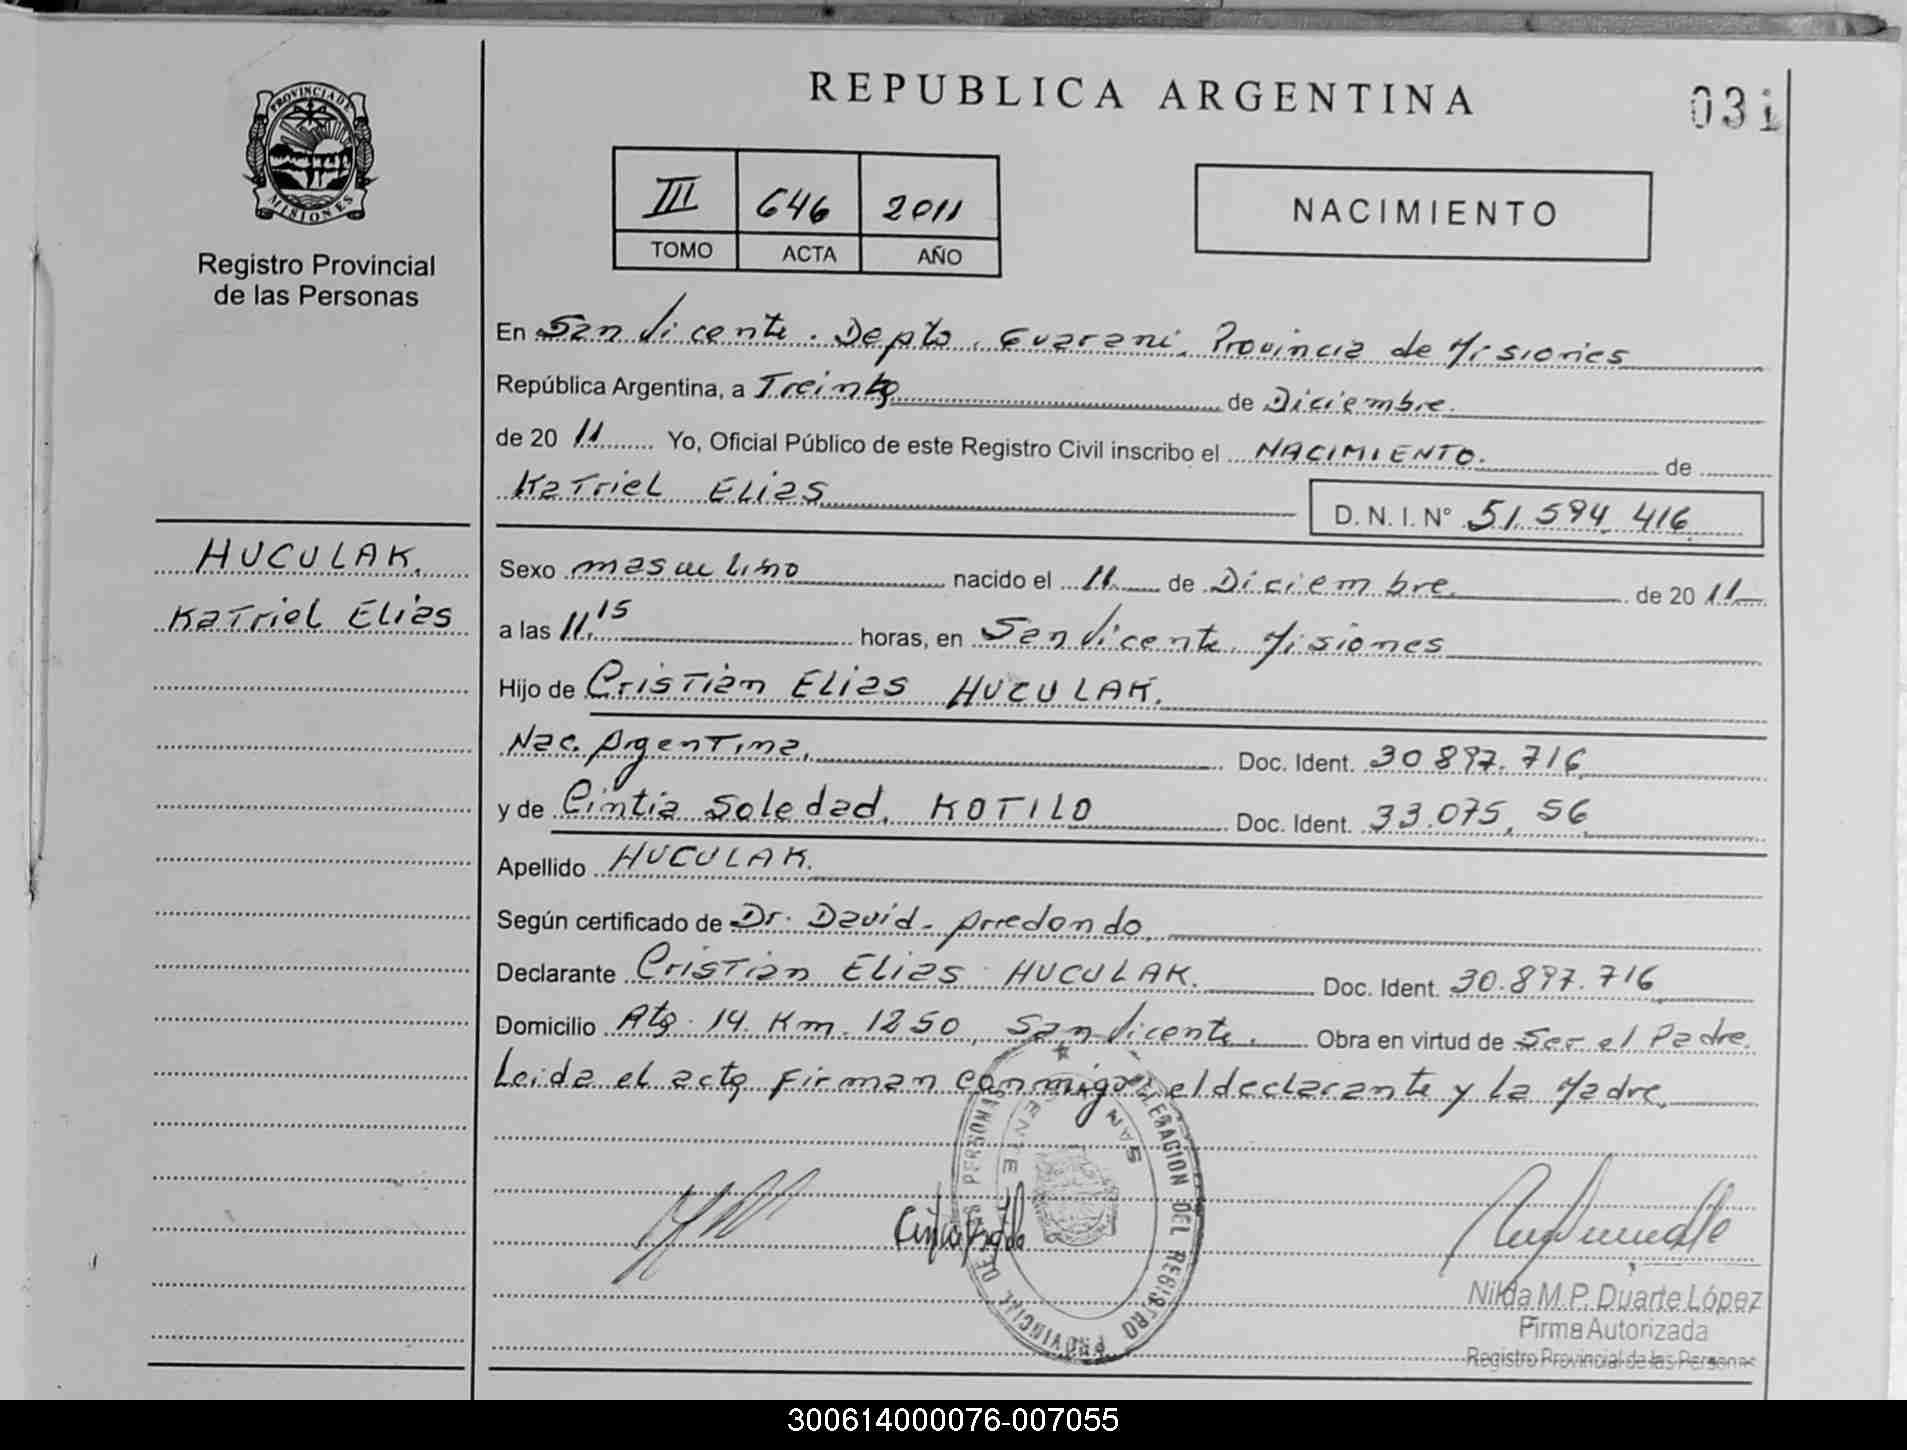 REPUBLICA ARGENTINA
031
PROVINCIA DE
MISIONES
Registro Provincial
de las Personas
III 646 2011
TOMO ACTA AÑO
NACIMIENTO
En San Vicente. Depto. Guarani. Provincia de Misiones
República Argentina, a Treinta de Diciembre.
de 20 11 Yo, Oficial Público de este Registro Civil inscribo el NACIMIENTO. de
Katriel Elias
D. N. I. N° 51.594.416
HUCULAK.
Katriel Elias
Sexo masculino nacido el 11 de Diciembre. de 20 11
a las 11.15 horas, en San Vicente. Misiones
Hijo de Cristian Elias HUCULAK.
Nac. Argentina. Doc. Ident. 30.897.716
y de Cintia Soledad. KOTILO Doc. Ident. 33.075.56
Apellido HUCULAK.
Según certificado de Dr. David. Arredondo.
Declarante Cristian Elias HUCULAK. Doc. Ident. 30.897.716
Domicilio Atg. 14. Km. 1250, San Vicente. Obra en virtud de Ser el Padre.
Leida el acta firman conmigo el declarante y la Madre.
DEL REGISTRO PROVINCIAL DE LAS PERSONAS
SAN VICENTE
Nilda M. P. Duarte López
Firma Autorizada
Registro Provincial de las Personas
300614000076-007055